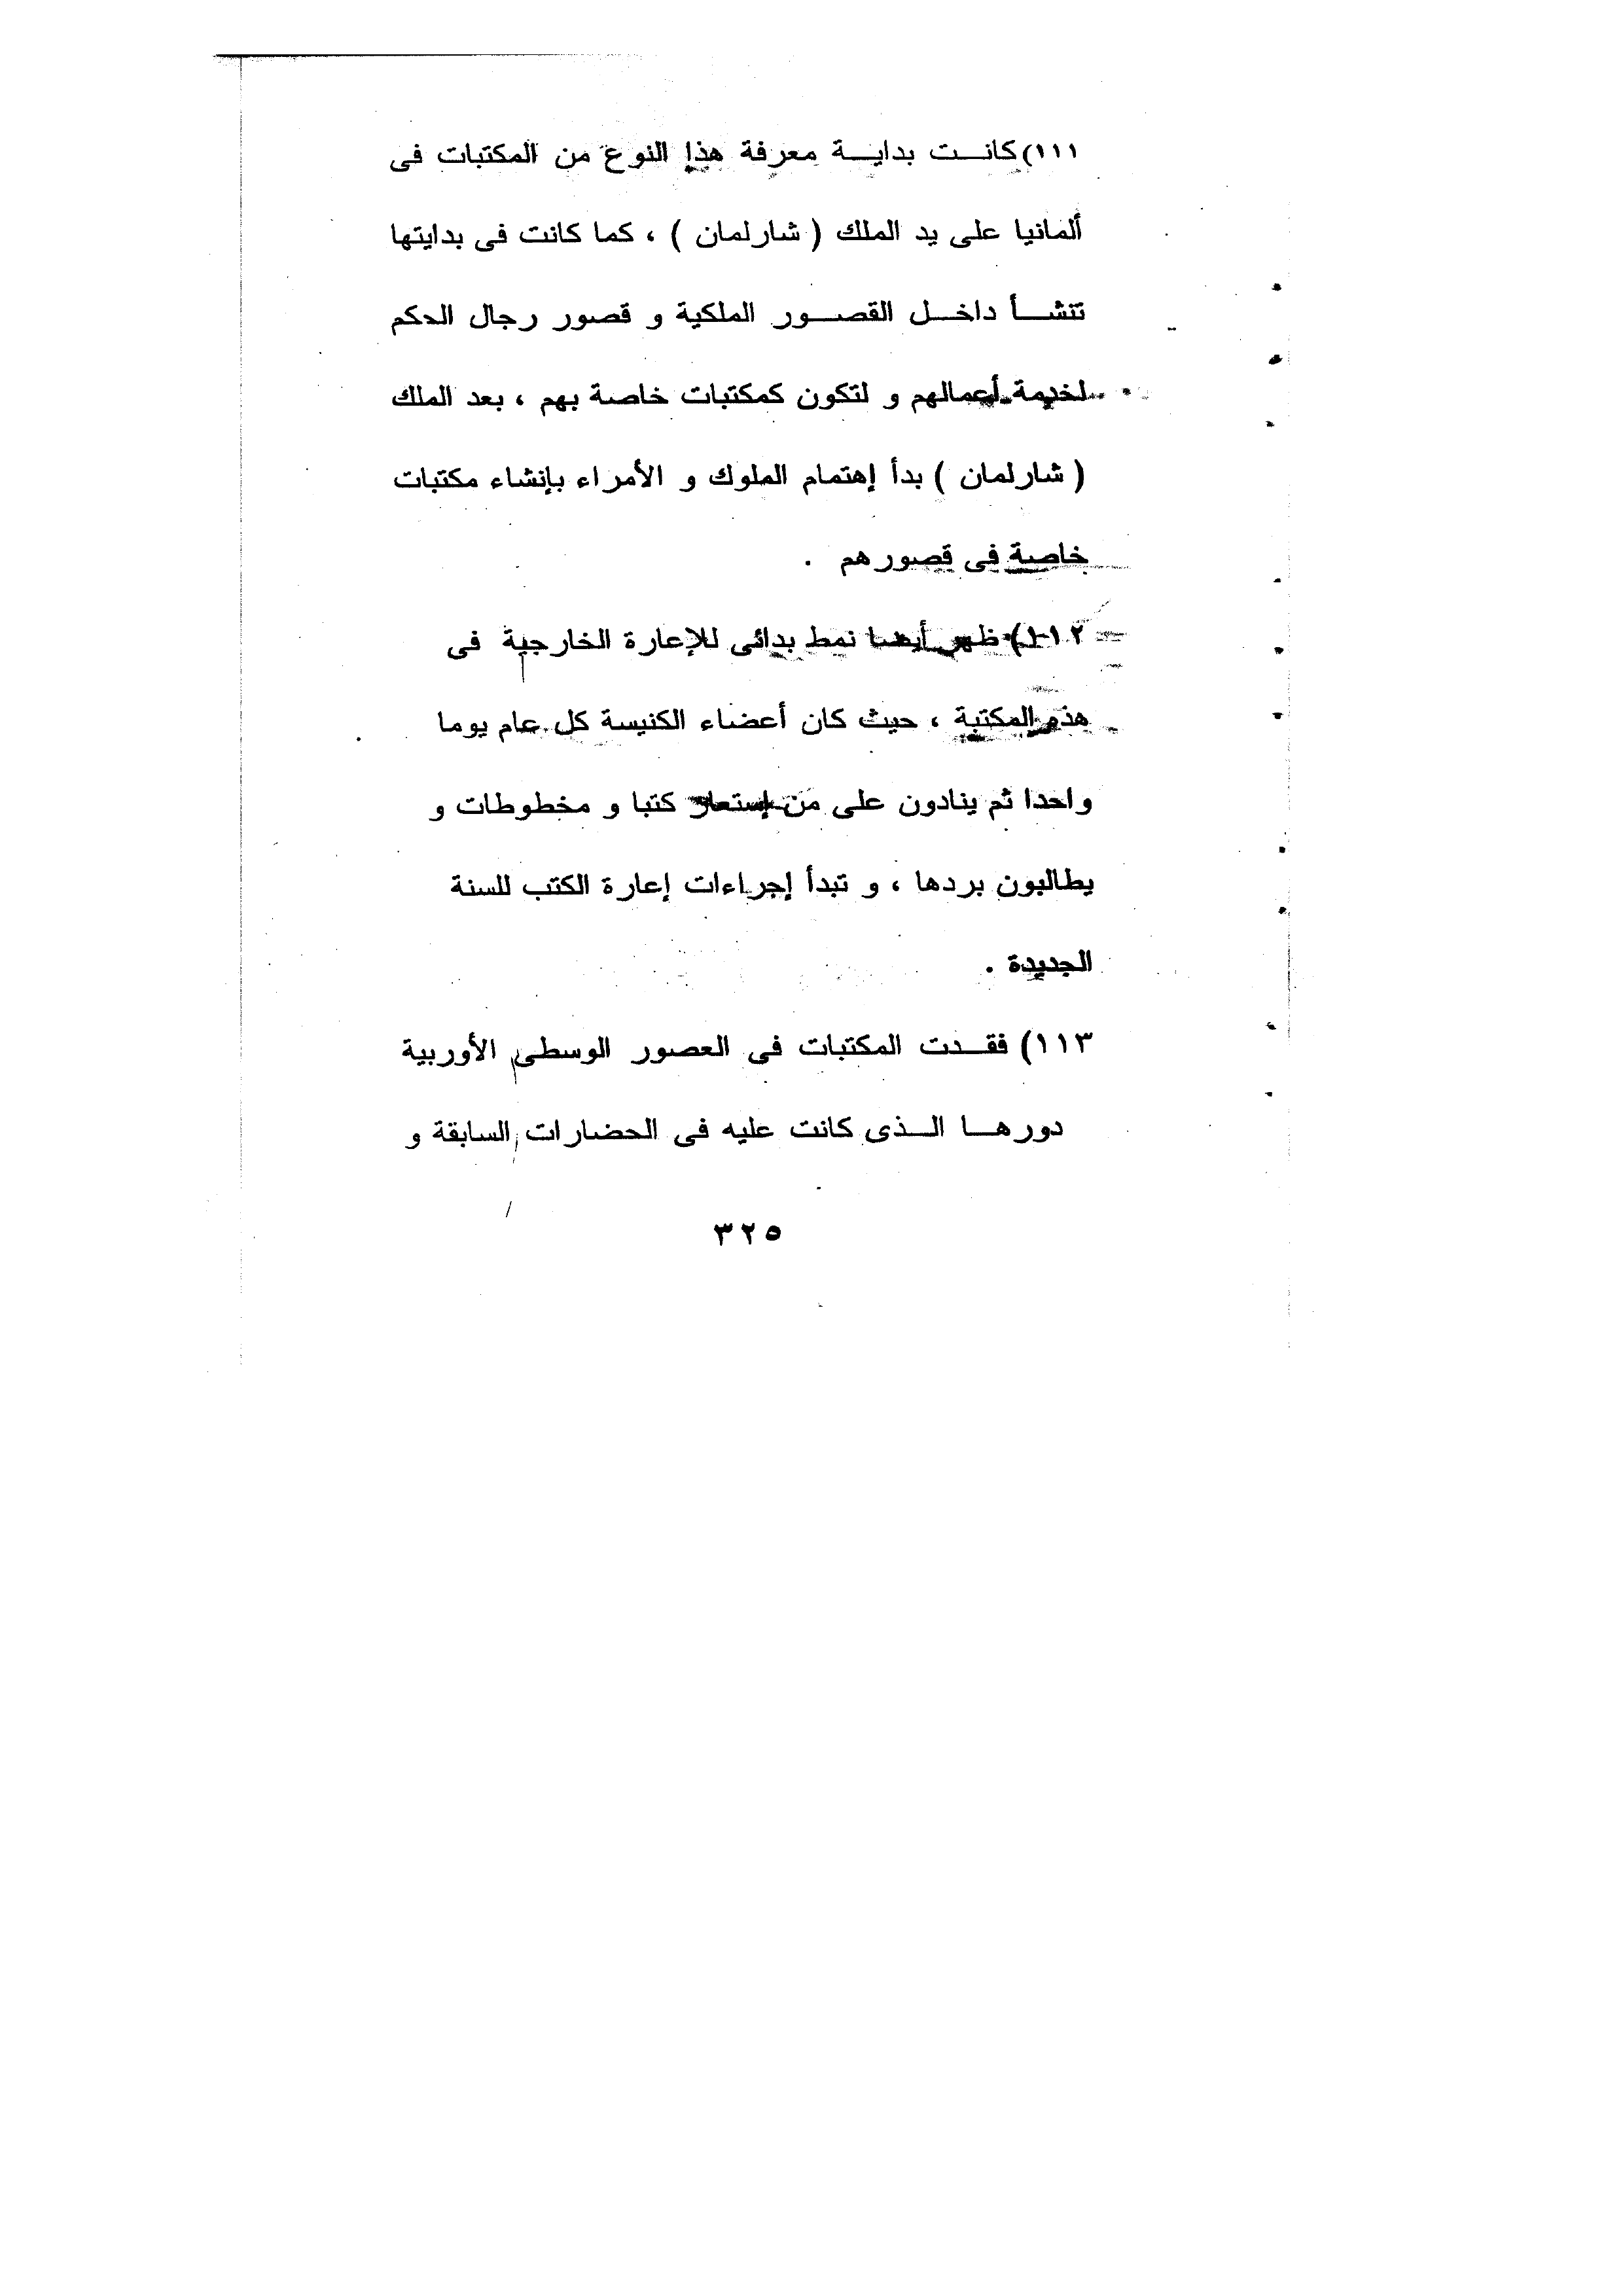 ١١١) كانت بداية معرفة هذا النوع من المكتبات فى
ألمانيا على يد الملك ( شارلمان ) ، كما كانت فى بدايتها
تنشأ داخل القصور الملكية و قصور رجال الحكم
لخدمة أعمالهم و لتكون كمكتبات خاصة بهم ، بعد الملك
( شارلمان ) بدأ إهتمام الملوك و الأمراء بإنشاء مكتبات
خاصة فى قصورهم .
١١٢) ظهر أيضا نمط بدائى للإعارة الخارجية فى
هذه المكتبة ، حيث كان أعضاء الكنيسة كل عام يوما
واحدا ثم ينادون على من إستعار كتبا و مخطوطات و
يطالبون بردها ، و تبدأ إجراءات إعارة الكتب للسنة
الجديدة .
١١٣) فقدت المكتبات فى العصور الوسطى الأوربية
دورها الذى كانت عليه فى الحضارات السابقة و
٣٢٥